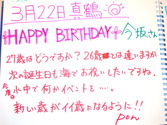 3月22日真鶴
HAPPY BIRTHDAY 今坂さん
27歳はどうですか?26歳とは違いますか
次の誕生日も海でお祝いしたいですね。
水中で何かイベントを・・・・。
新しい歳がイイ歳になるように!!
pon